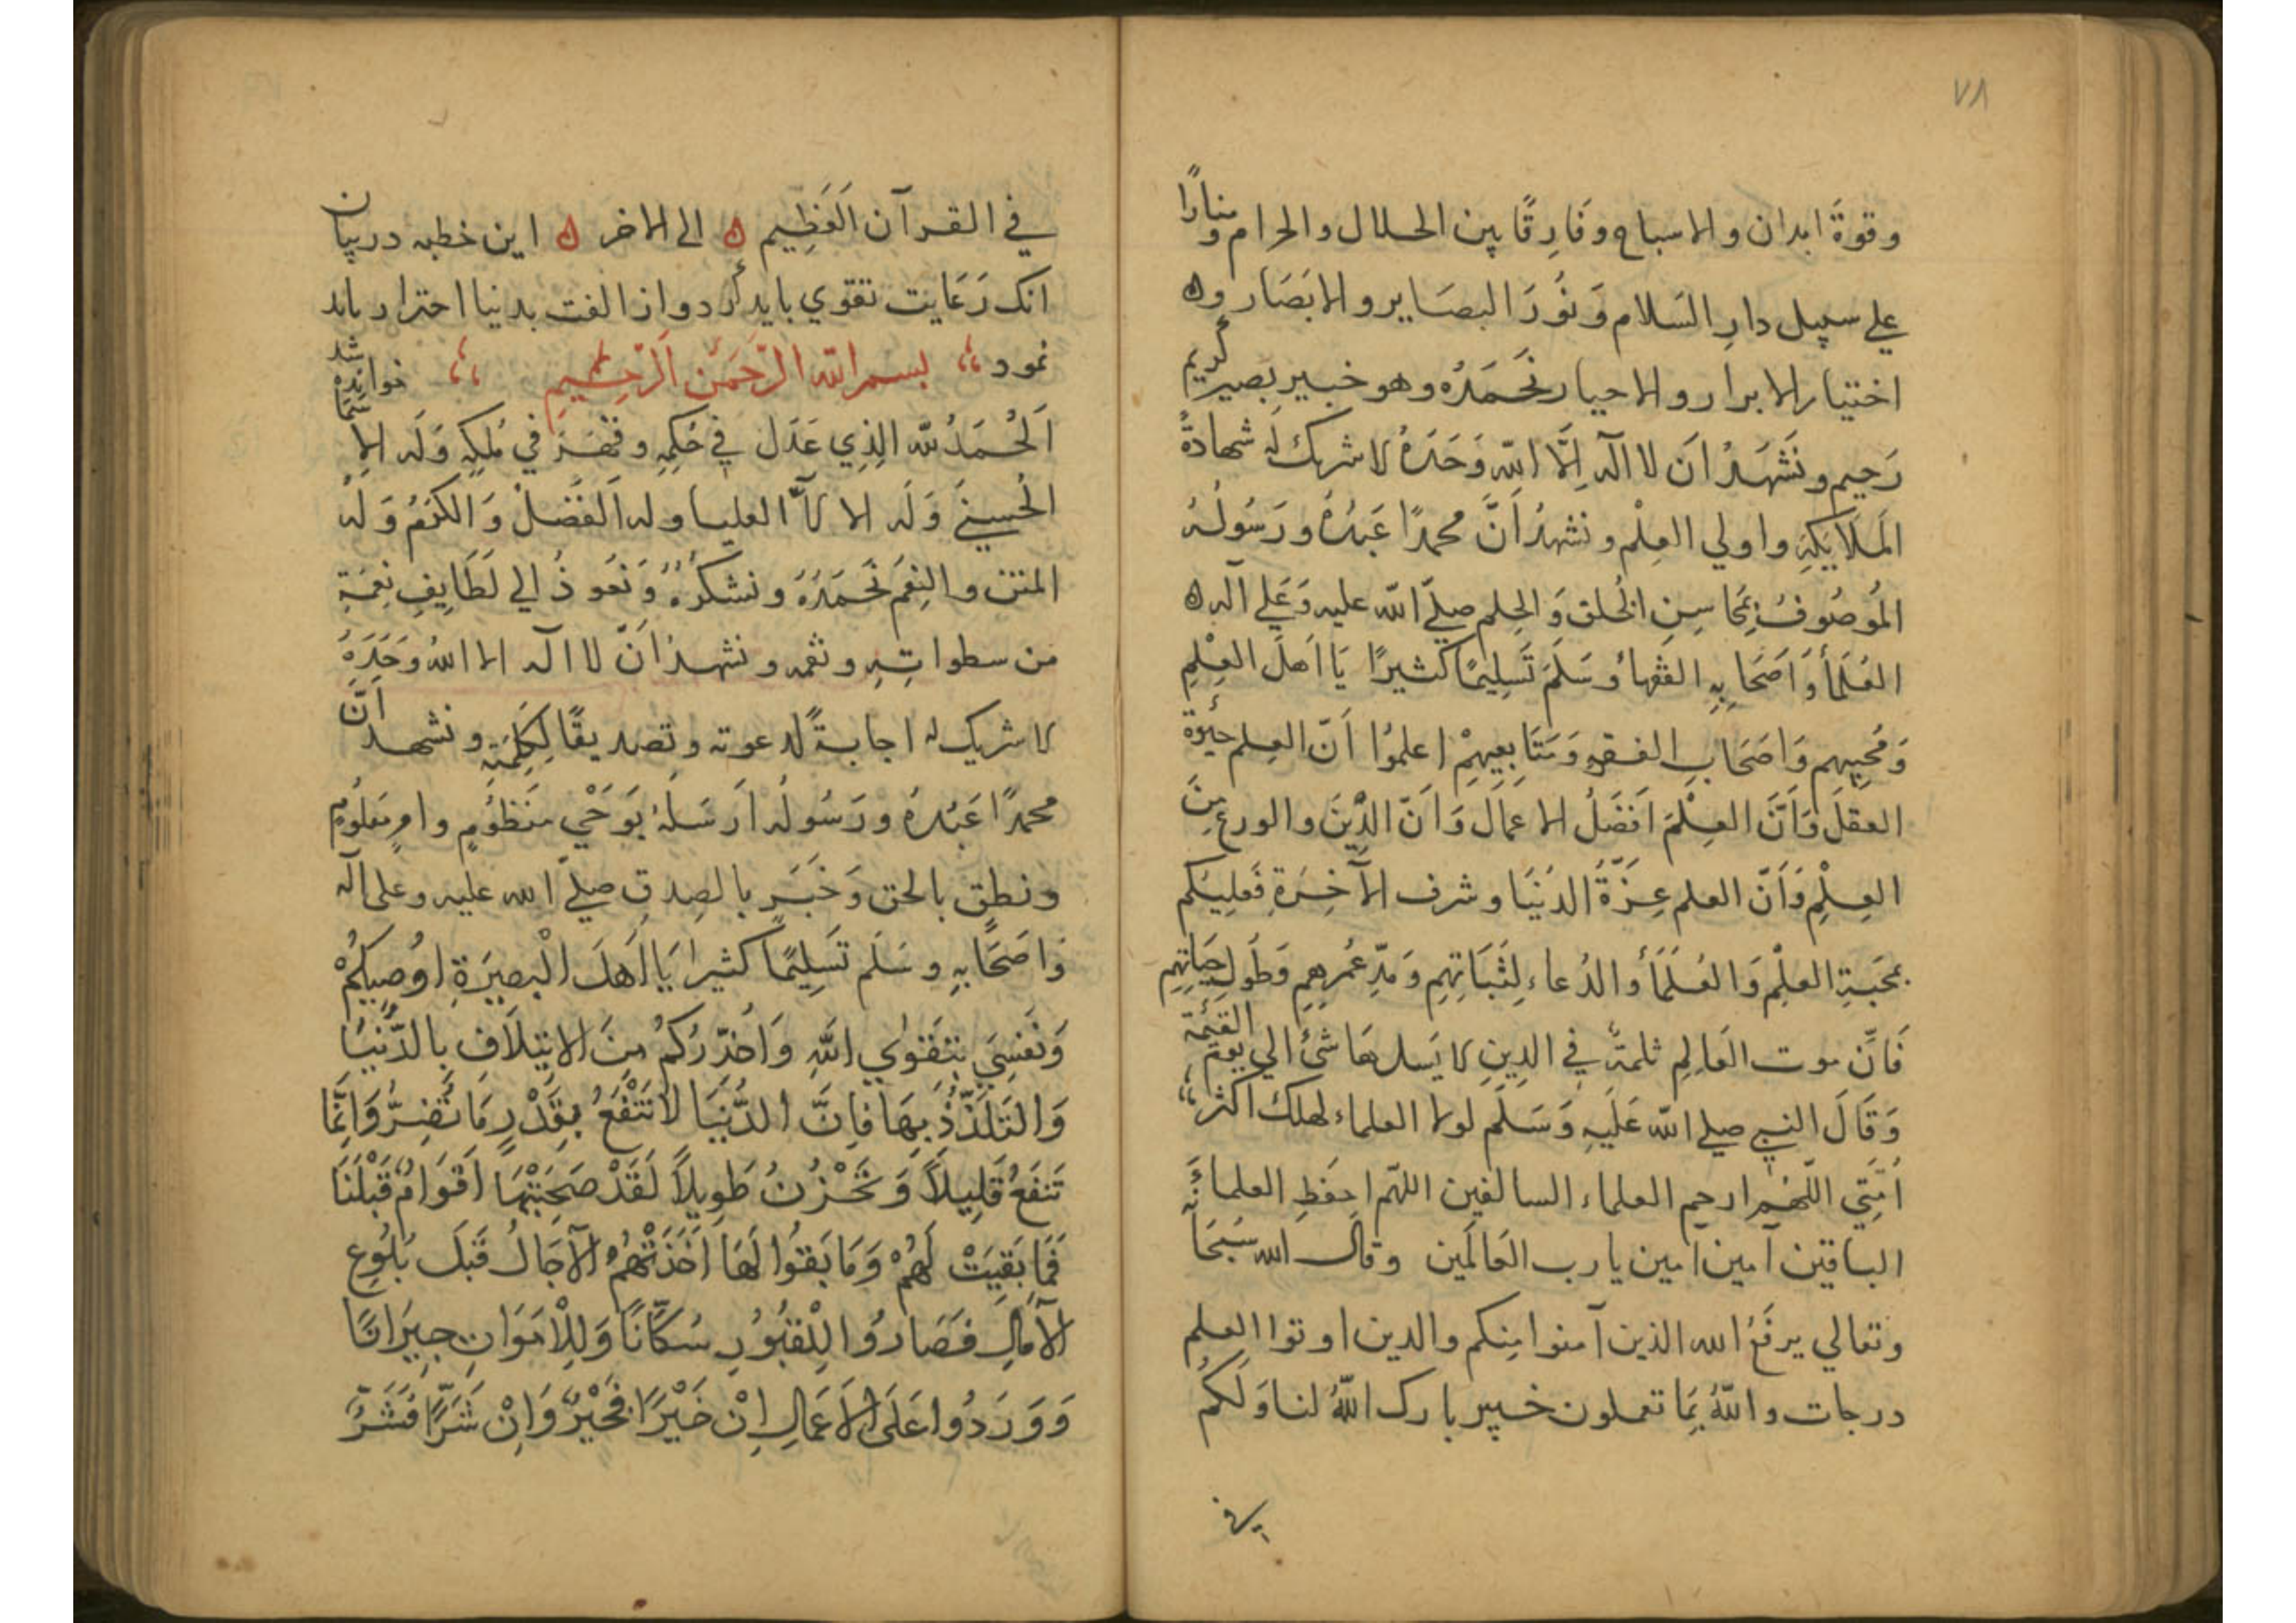 ٧٨
وقوةَ ابدان والاسباح وفَارِقًا بين الحلال والحرام ومنارًا
علي سبيل دارِ السَلام وَنُوْرَ البصَاير والابَصَار و
اختيار الابرار والاحيار نَحَمَدُه وهو خبير بَصير كريم
رَحيم ونَشَهَدُ اَن لا اله اِلَّا اللّه وَحَدَهُ لا شريك لَه شهادةً
المَلَايَكةِ واولي العِلْم ونشهدُ اَنَّ محمدًا عَبدُهُ ورَسُولُهُ
المُوصُوفُ بمَحَاسِنِ الخُلق وَالحِلم صلّي اللّه عليه وَعَلي آله
العُلَمَأ وَاَصَحَابِهِ الفقهاُ وَسَلَمَ تَسَلِيمًا كثيرًا يَا اَهلَ العِلْمِ
وَمُحِبيهم وَاَصَحَابِ الفقهِ وَمَتَابِعِيهِمْ اعلموُا اَنّ العِلم حَيٰوة
العقلَ وَاَنَّ العِلْمَ اَفَضَلُ الاعمَال وَاَنّ الدِّيَنَ والورع مِنَ
العِلْمِ وَاَنّ العلم عِزَّةُ الدُنْيَا وشرف الآخِرَةِ فَعَلِيَكم
بمحَبَةِ العلْمِ وَالعُلَمَأ والدُعاء لِثَبَاتِهِم وَمَدِّ عُمرهِمِ وَطُولِ حَيَاتِهِم
فَاِنّ موت العَالِمِ ثلمةٌ فِي الدِينِ لا يَسدهَا شئ الي يوم القيٰمة
وَقَالَ النبي صلي اللّه عَلَيهِ وَسَلَم لولا العلماء لهلك اكثر
اُمَّتِي اللّهُم ارحم العلماء السالفين اللهّم احفَظِ العلماءَ
الباقين آمين آمين يا رب العَالَمين وقال الله سُبَحَانَه
وتعالي يرفَع الله الذين آمنوا مِنكم والدين اوتوا العلم
درجات واللّهُ بِمَا تعملون خبير بارك اللّهُ لنا وَلَكُم
في القرآن العَظِيم الي الاخر اين خطبه در بيان
انك رَعَايت تقوي بايد كردو از الفت بدنيا احترار بايد
نمود بسم اللّه الرّحَمَن الرَّحِيمِ خوانده شد
اَلْحُمَدُ للّه الذِي عَدَل فِي حُكِمِهِ وقَهَرَ في مُلكِهِ وَلَه الاسما
الحُسنيَ وَلَه الالآَء العليا وله الفَضَلُ وَالكَرَمُ وَلَهُ
المنَن والنِعَمَ نَحَمَدُهَ ونشكرُهُ وَنَعوذُ الي لَطَايِفِ نِعَمَةِ
مَن سطواتِهِ ونقمه ونشهدُ اَنّ لا اله الا اللهُ وَحَدَهُ
لا شريك له اجابةً لدعوته وتصديقًا لِكلَمتِهِ ونشهد اَنَّ
محمدًا عَبْدهُ ورَسُولُه اَرَسَلَهُ بوَحْيٍ مَنَظُومٍ وامرٍ مَعلُومٍ
ونطق بالحق وَخَبَرٍ بالصِدقِ صليّ الله عليه وعلي اله
وَاَصَحَابِهِ وسَلَم تَسَلِيمًا كثيرا يَا اَهَلَ الْبصِيَرَةِ اوُصِيكُمْ
وَنَفسِيَ بِتَقوٰي اللّهِ وَاُحَذّرُكُمْ مِنَ الايتِلَافِ بالدُّنْيَا
وَالتَلَذّذُ بِهَا فَاِنَّ الدُّنْيَا لَا تَنْفَعُ بِقَدْرِ مَا تَضِرُّ وَاِنَّمَا
تَنفَعُ قَلِيلَاً وَتَحْزُنُ طَوِيلاً لَقَدْ صَحِبَتْهَا اَقْوَامٌ قَبْلَنَا
فَمَا بَقِيَتْ لَهُمْ وَمَا بَقوُا لَهَا اَخَذَتْهُمُ الآجَالُ قَبَلَ بُلُوغِ
الآمَالِ فَصَارُوا لِلْقبُوُرِ سُكَّانًا وَلِلْاَمَوَاتِ جِيَرَانًا
وَوَرَدُوا عَلَى الاَعَمَالِ اِنْ خَيْرًا فَخَيْرٌ وَاِنْ شَرًّا فَشَرٌّ